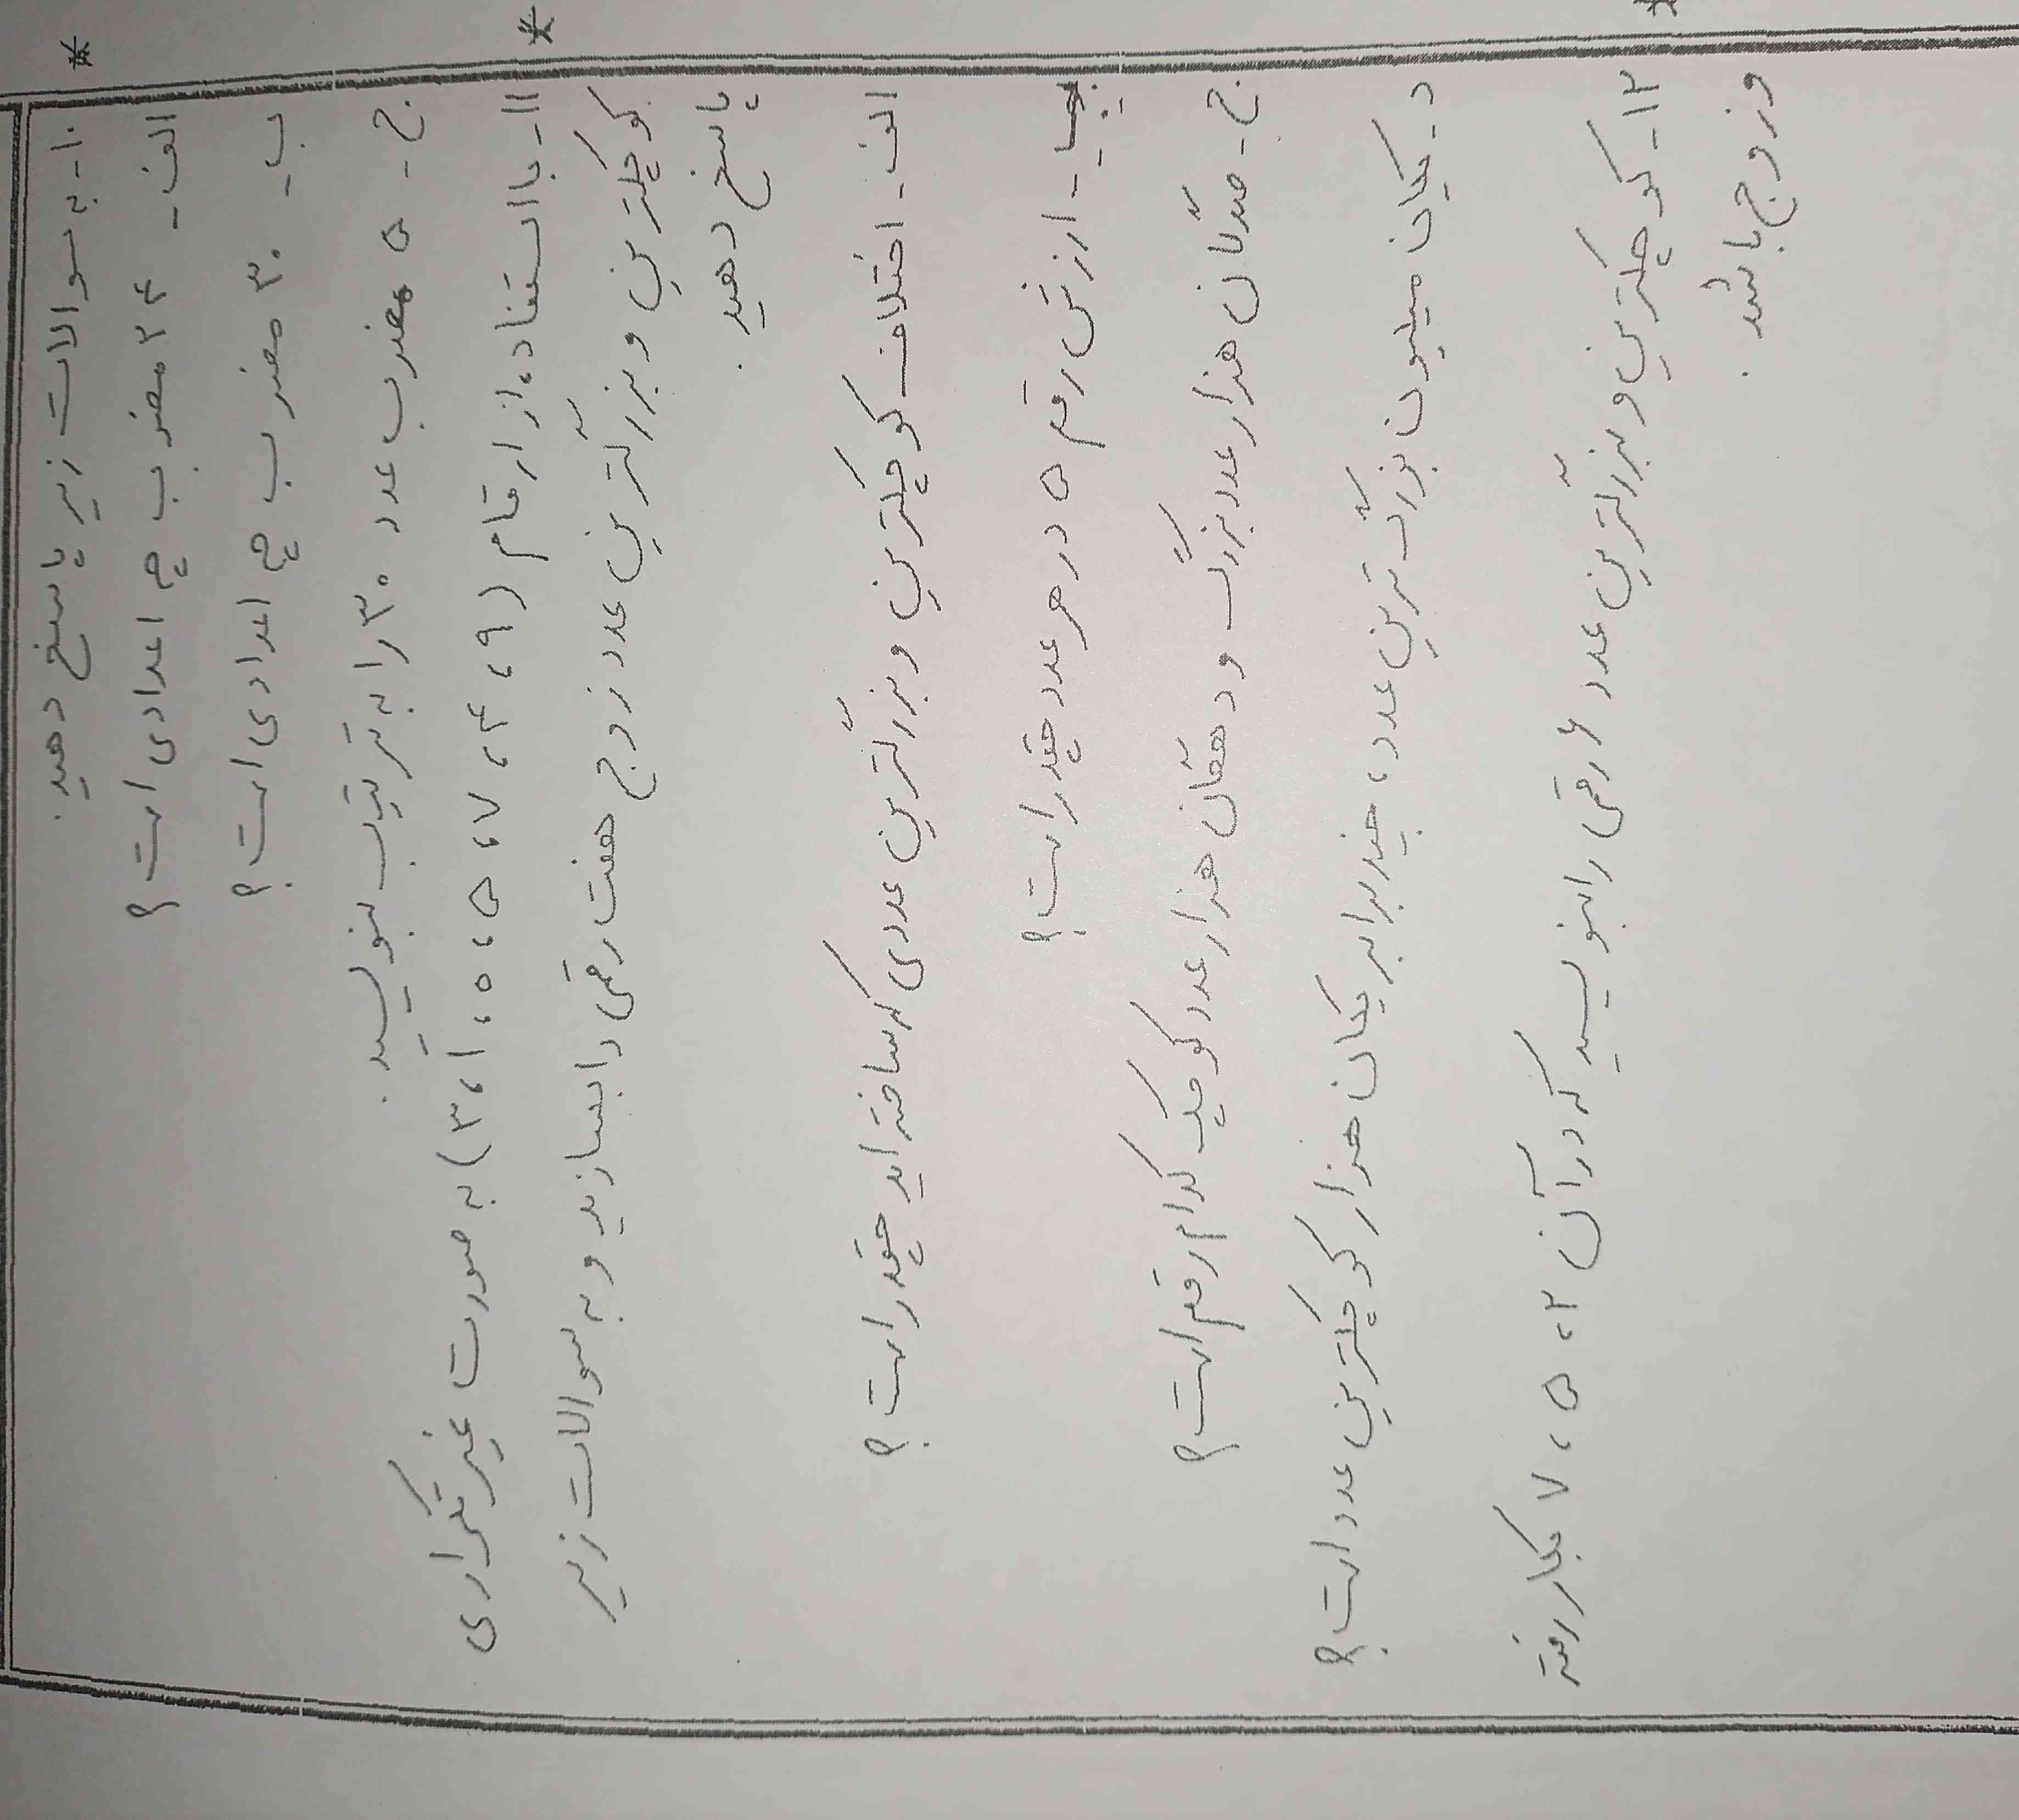 * ۱۰- به سوالات زیر پاسخ دهید.
الف- ۲۴ مضرب چه اعدادی است؟
ب- ۳۰ مضرب چه اعدادی است؟
ج- ۵ مضرب عدد ۳۰ را به ترتیب بنویسید.
* ۱۱- با استفاده از ارقام (۹، ۴، ۷، ۵، ۰، ۱، ۳) به صورت غیر تکراری
کوچکترین و بزرگترین عدد زوج هفت رقمی را بسازید و به سوالات زیر
پاسخ دهید.
الف- اختلاف کوچکترین و بزرگترین عددی که ساخته اید چقدر است؟
ب- ارزش رقم ۵ در هر عدد چقدر است؟
ج- صدگان هزار عدد بزرگ و دهگان هزار عدد کوچک کدام رقم است؟
د- یکان میلیون بزرگ ترین عدد، چند برابر یکان هزار کوچکترین عدد است؟
* ۱۲- کوچکترین و بزرگترین عدد ۶ رقمی را بنویسید که در آن ۲، ۵، ۷ بکار رفته
و زوج باشد.